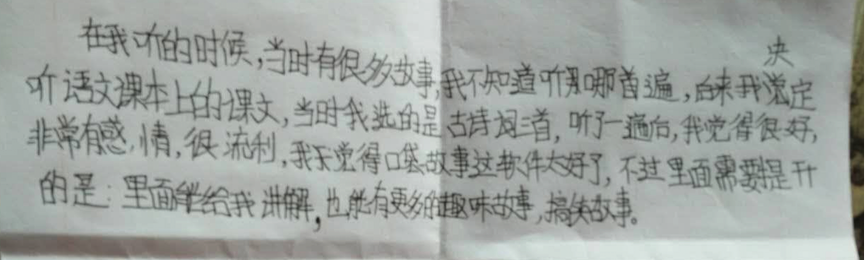 在我听的时候,当时有很多故事,我不知道听那哪首遍,后来我觉定
央
听语文课本上的课文,当时我选的是古诗词三首,听了一遍后,我觉得很好,
非常有感情,很流利,我天觉得口袋故事这软件太好了,不过里面需要提升
的是:里面能给我讲解,也能有更多的趣味故事,搞笑故事。